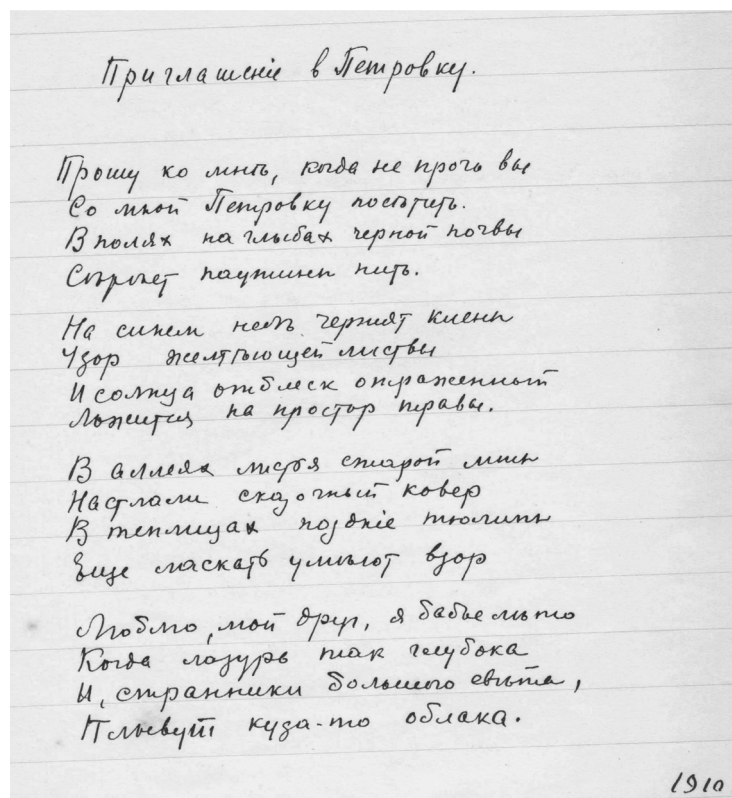 Приглашенiе в Петровку.
Прошу ко мнѣ, когда не прочь вы
Со мной Петровку посѣтить.
В полях на глыбах черной почвы
Сверкает паутины нить.
На синем небѣ чернят клены
Узор желтѣющей листвы
И солнца отблеск отраженный
Ложится на простор травы.
В аллеях листья старой липы
Настлали сказочный ковер
В теплицах позднiе тюлипы
Еще ласкать умѣют взор
Люблю, мой друг, я бабье лѣто
Когда лазурь так глубока
И, странники большого свѣта,
Плывут куда-то облака.
1910